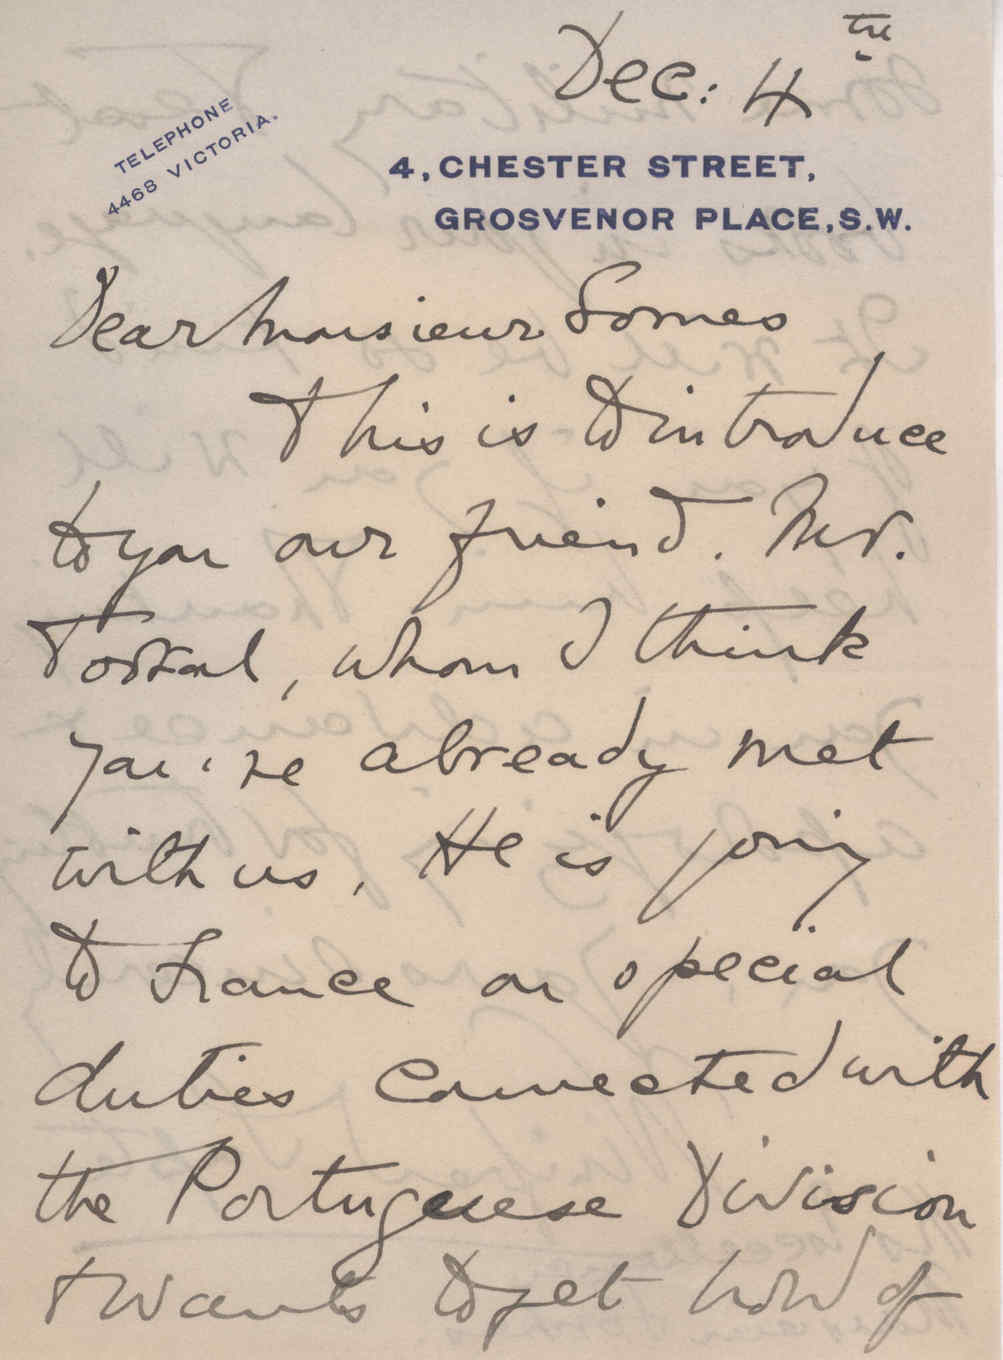 Dec: 4th
TELEPHONE
4468 VICTORIA.
4, CHESTER STREET,
GROSVENOR PLACE, S.W.
Dear Monsieur Gomes
This is to introduce
to you our friend. Mr.
whom I think
you've already met
with us. He is going
to France on special
duties connected with
the Portuguese Division
& wants to get hold of